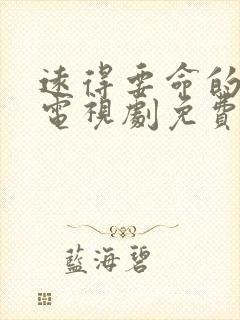 遠得要命的
電視劇免費
藍海碧